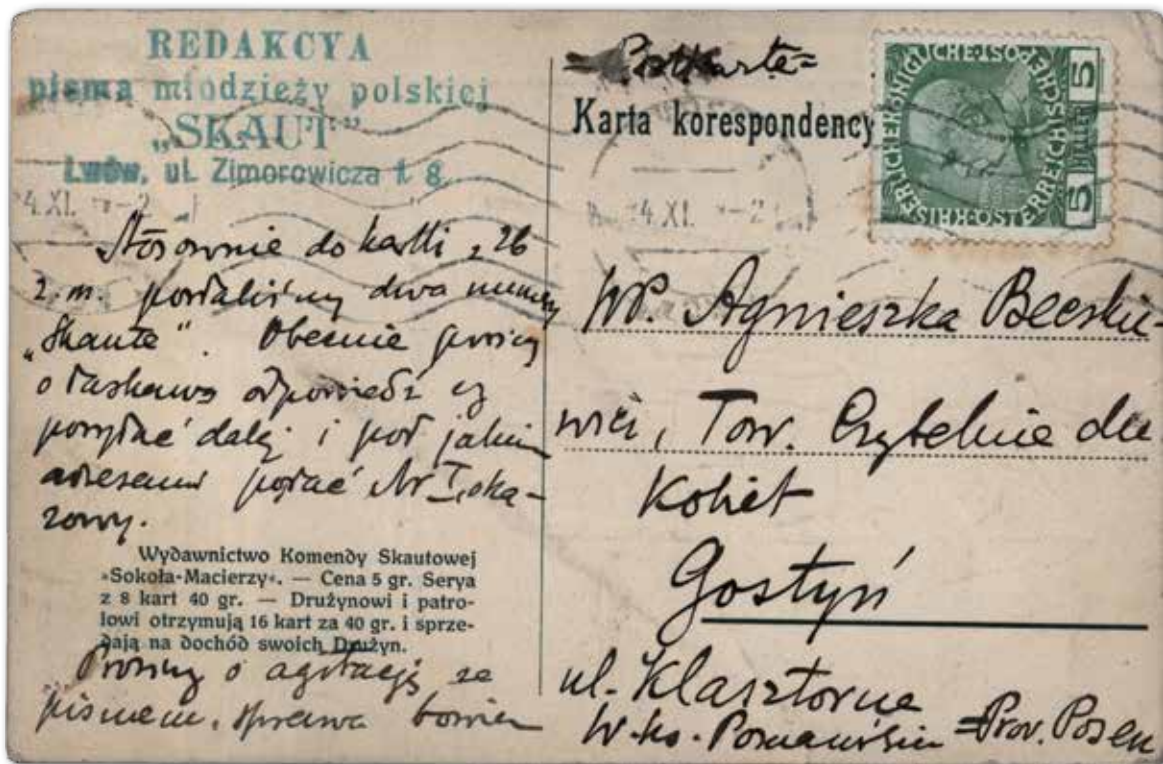 REDAKCYA
pisma młodzieży polskiej
„SKAUT”
Lwów, ul. Zimorowicza l. 8
4 XI.
Stosownie do kartki z 26
z. m. posłaliśmy dwa numery
„Skauta”. Obecnie prosimy
o łaskawą odpowiedź czy
posyłać dalej i pod jakim
adresem posłać Nr I, oka-
zowy.
Wydawnictwo Komendy Skautowej
»Sokoła-Macierzy«. — Cena 5 gr. Serya
z 8 kart 40 gr. — Drużynowi i patro-
lowi otrzymują 16 kart za 40 gr. i sprze-
dają na dochód swoich Drużyn.
Prosimy o agitację za
pismem, sprawa bowiem
=Postkarte=
Karta korespondency
4 XI.
KAISERLICHE KÖNIGLICHE ÖSTERREICHISCHE POST
5 HELLER 5
WP. Agnieszka Beeskie-
wicz, Tow. Czytelnie dla
Kobiet
Gostyń
ul. Klasztorna
W. ks. Poznańskie =Prov. Posen